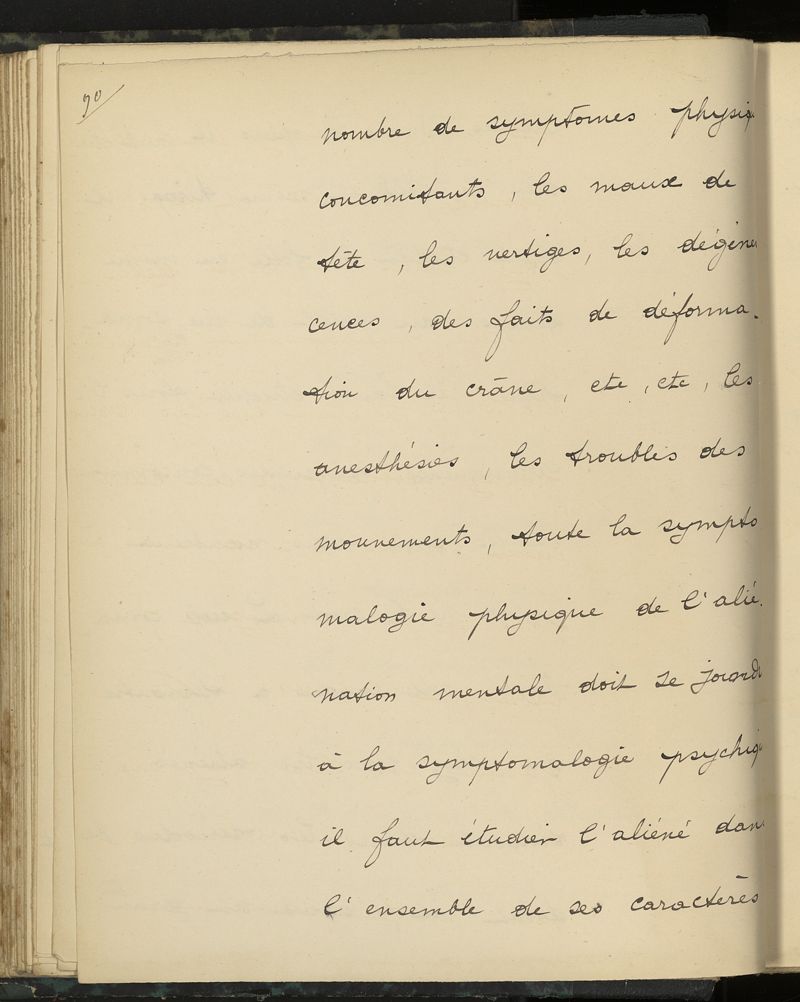 90
nombre de symptômes physiq
concomitants, les maux de
tête, les vertiges, les dégéne
cences, des faits de déforma-
tion du crâne, etc, etc, les
anesthésies, les troubles des
mouvements, toute la sympto
malogie physique de l'alié-
nation mentale doit se joindr
à la symptomalogie psychiq
il faut étudier l'aliéné dans
l'ensemble de ses caractères